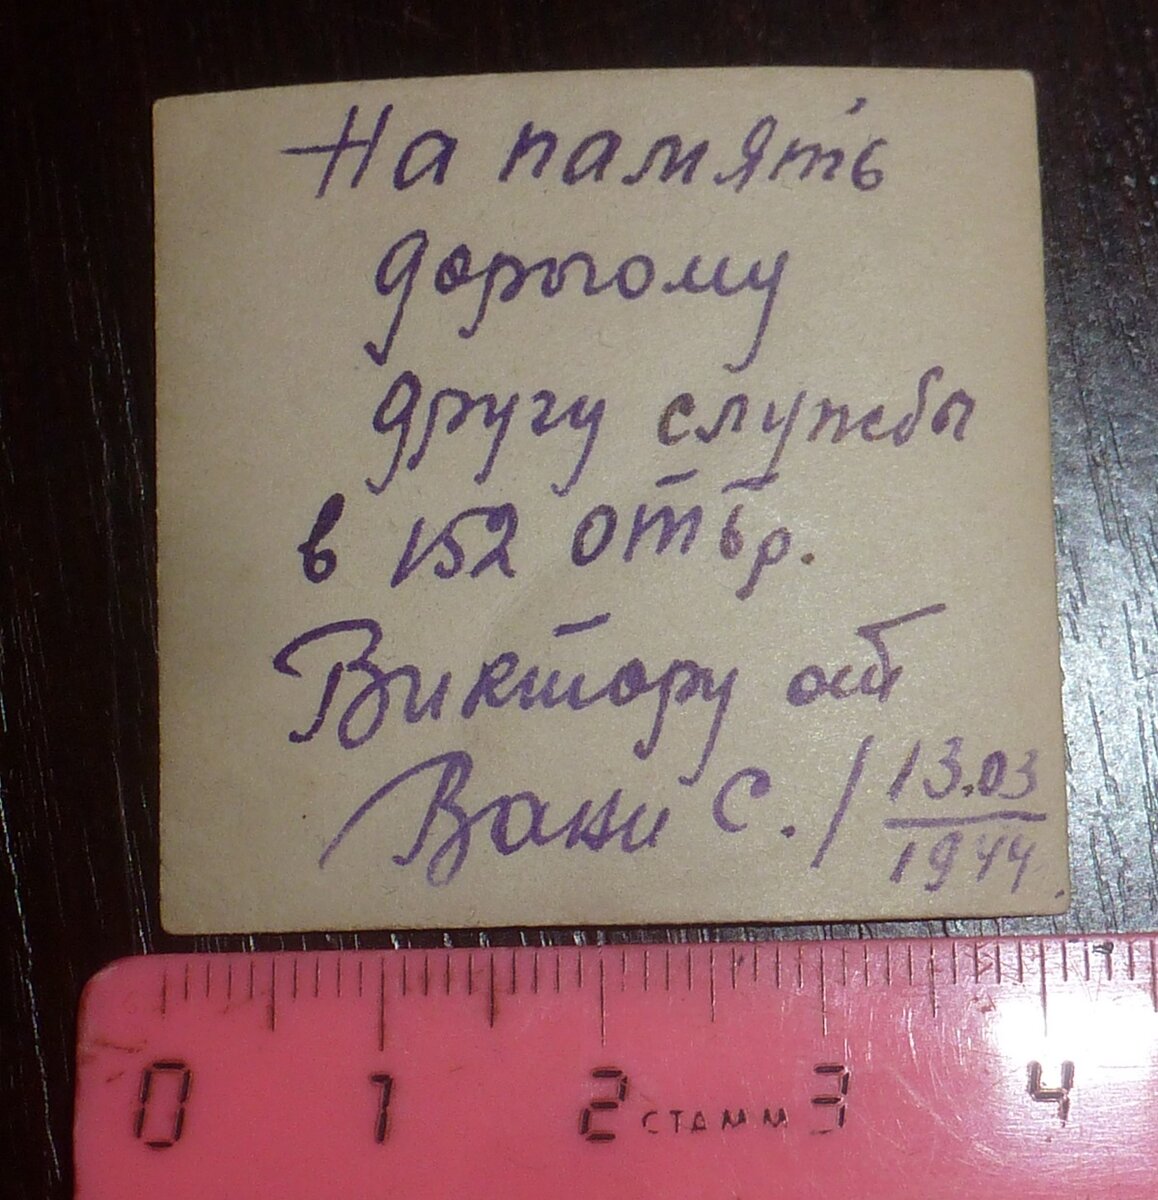 На память
дорогому
другу службы
в 152 отбр.
Виктору от
Вани С. / 13.03
1944.
0 1 2 СТАММ 3 4